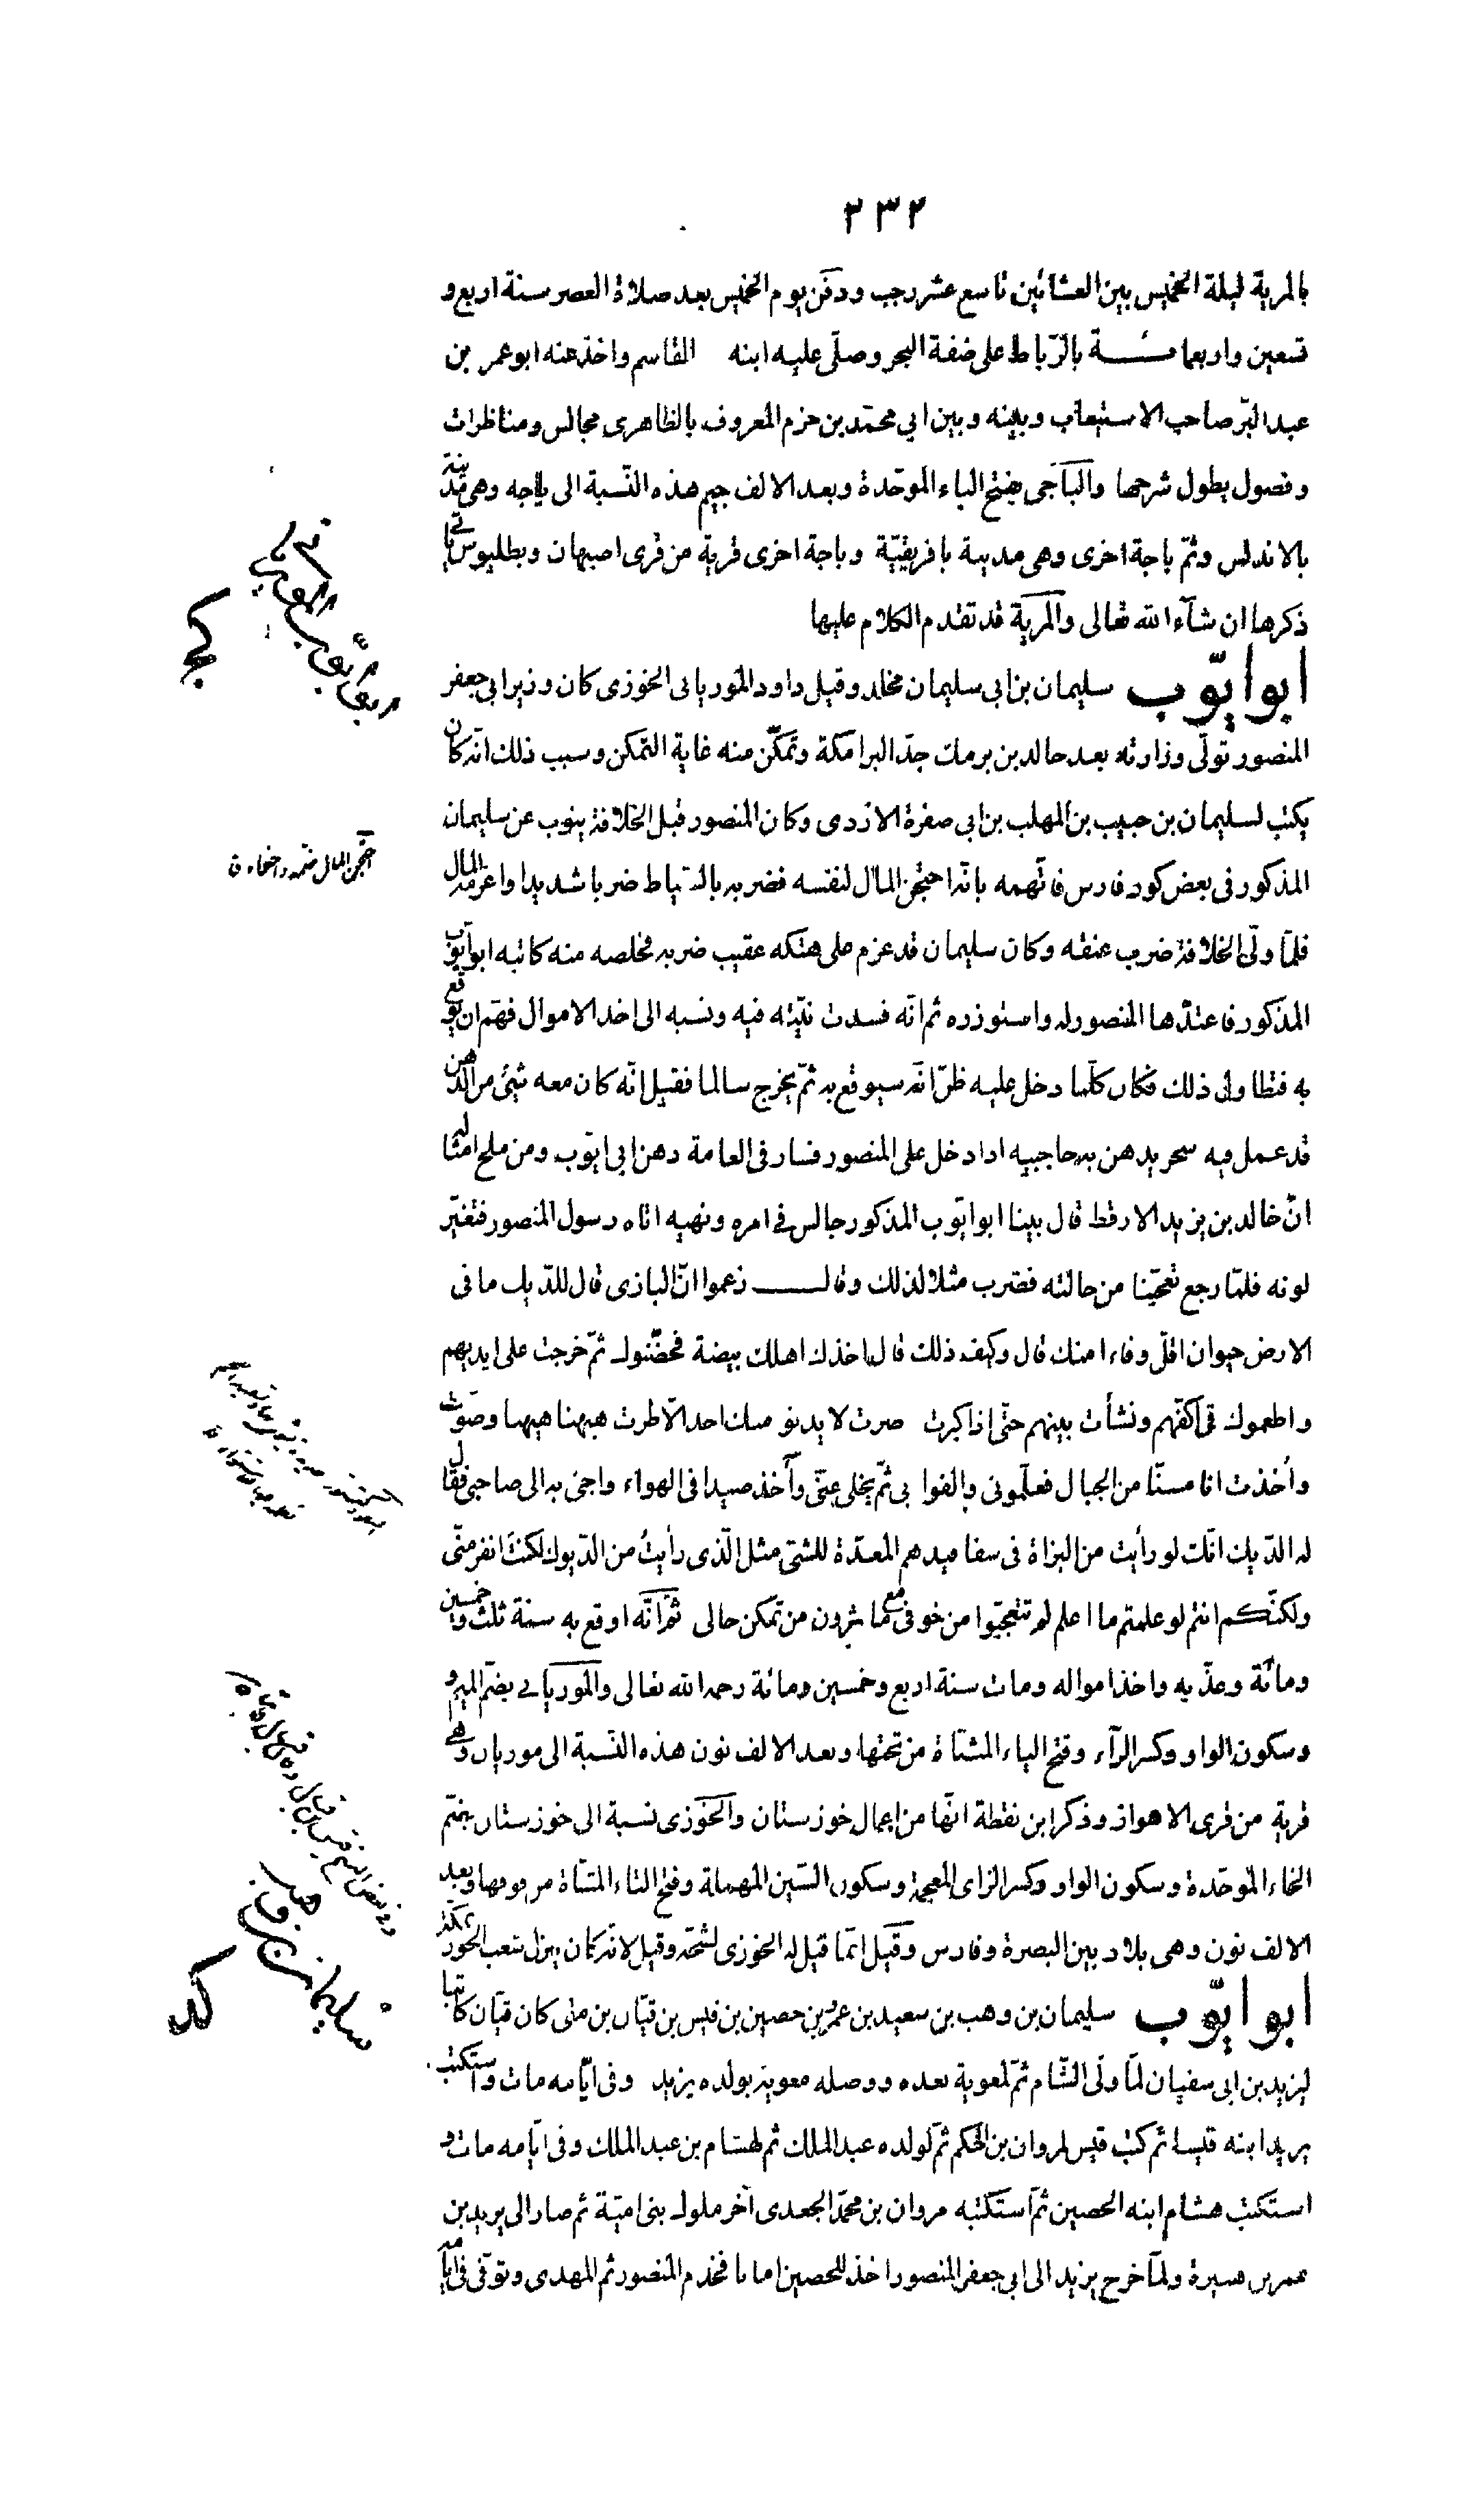 ٢٣٢
بالمرية ليلة الخميس بين العشائين تاسع عشر رجب ودفن يوم الخميس بعد صلاة العصر سنة اربع و
تسعين واربعمائة بالرّباط على ضفة البحر وصلّى عليه ابنه القاسم واخذ عنه ابو عمر بن
عبد البرّ صاحب الاستيعاب وبينه وبين ابي محمّد بن حزم المعروف بالظاهرى مجالس ومناظرات
وفصول يطول شرحها والباجى بفتح الباء الموحّدة وبعد الالف جيم هذه النّسبة الى باجه وهى مدينة
بالاندلس وثمّ باجة اخرى وهى مدينة بافريقيّة وباجة اخرى قرية من قرى اصبهان وبطليوس ياتى
ذكرها ان شآء الله تعالى والمرية قد تقدم الكلام عليها
ابو ايّوب سليمان بن ابى سليمان مخلد وقيل داود المورياني الخوزى كان وزير ابى جعفر
المنصور تولّى وزارته بعد خالد بن برمك جدّ البرامكة وتمكّن منه غاية التمكن وسبب ذلك انّه كان
يكتب لسليمان بن حبيب بن المهلب بن ابي صفرة الازدى وكان المنصور قبل الخلافة ينوب عن سليمان
المذكور فى بعض كور فارس فاتّهمه بانّه احتجن المال لنفسه فضربه بالسّياط ضربا شديدا واغرمه المال
فلمّا ولّى الخلافة ضرب عنقه وكان سليمان قد عزم على هتكه عقيب ضربه فخلصه منه كاتبه ابو ايّوب
المذكور فاعتدّها المنصور له واستوزره ثم انّه فسدت نيّته فيه ونسبه الى اخذ الاموال فهّم ان يوقع
به فتطاول ذلك فكان كلّما دخل عليه ظنّ انّه سيوقع به ثمّ يخرج سالما فقيل انّه كان معه شئ من الدّهن
قد عمل فيه سحر يدهن به حاجبيه اذا دخل على المنصور فسار فى العامة دهن ابى ايّوب ومن ملح امثاله
انّ خالد بن يزيد الارقط قال بينا ابو ايّوب المذكور جالس فى امره ونهيه اتاه رسول المنصور فتغيّر
لونه فلمّا رجع تعجّبنا من حالته فضرب مثلا لذلك وقال زعموا انّ البازى قال للدّيك ما فى
الارض حيوان اقلّ وفاء منك قال وكيف ذلك قال اخذك اهلك بيضة فحضّنوك ثمّ خرجت على ايديهم
واطعموك فى اكفّهم ونشأت بينهم حتّى اذا كبرت صرت لا يدنو منك احد الّا طرت هيهنا هيهنا وصوّت
وأخذت انا مسنّا من الجبال فعلّمونى والفوا بى ثمّ يخلى عنّى وآخذ صيدا فى الهواء واجئ به الى صاحبى فقال
له الدّيك انّك لو رأيت من البزاة فى سفافيدهم المعدّة للشّى مثل الّذى رأيتُ من الدّيوك لكنتَ انفر منّى
ولكنّكم انتم لو علمتم ما اعلم لم تتعجّبوا من خوفى مع ما ترون من تمكن حالى ثمّ انّه اوقع به سنة ثلث وخمسين
ومائة وعذّبه واخذ امواله ومات سنة اربع وخمسين ومائة رحمه الله تعالى والموريانى بضمّ الميم و
وسكون الواو وكسر الرّآء وفتح الياء المثنّاة من تحتها وبعد الالف نون هذه النّسبة الى موريان وهى
قرية من قرى الاهواز وذكر ابن نقطة انّها من اعمال خوزستان والخوزى نسبة الى خوزستان بضمّ
الخاء الموحّدة وسكون الواو وكسر الزاى المعجمة وسكون السّين المهملة وفتح التاء المثنّاة من فوقها وبعد
الالف نون وهى بلاد بين البصرة وفارس وقيل انّما قيل له الخوزى لشحّه وقيل لانّه كان ينزل شعب الخوز بمكّة
ابو ايّوب سليمان بن وهب بن سعيد بن عمرو بن حصين بن قيس بن قنان بن متى كان قنان كاتبا
ليزيد بن ابى سفيان لمّا ولّى الشّام ثمّ لمعوية بعده ووصله معوية بولده يزيد وفى ايّامه مات واستكتب
يزيد ابنه قيسا ثم كتب قيس لمروان بن الحكم ثمّ لولده عبد الملك ثم لهشام بن عبد الملك وفى ايّامه مات و
استكتب هشام ابنه الحصين ثمّ استكتبه مروان بن محمّد الجعدى آخر ملوك بنى اميّة ثم صار الى يزيد بن
عمر بن هبيرة ولمّا خرج يزيد الى ابى جعفر المنصور اخذ للحصين امانا فخدم المنصور ثم المهدى وتوفّى فى ايّامه
احتجن المال ضمّه واخفاه ق
سليمان بن وهب